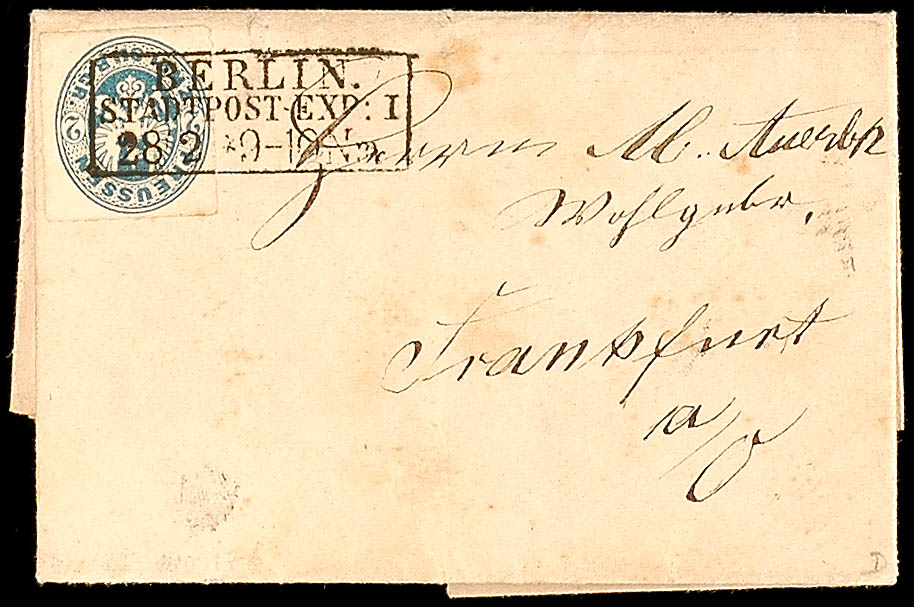 BERLIN.
STADTPOST-EXP: I
28 2 *9-10N
PREUSSEN
2 2
Herrn M. Auerbch
Wohlgebr.
Frankfurt
a/O
D